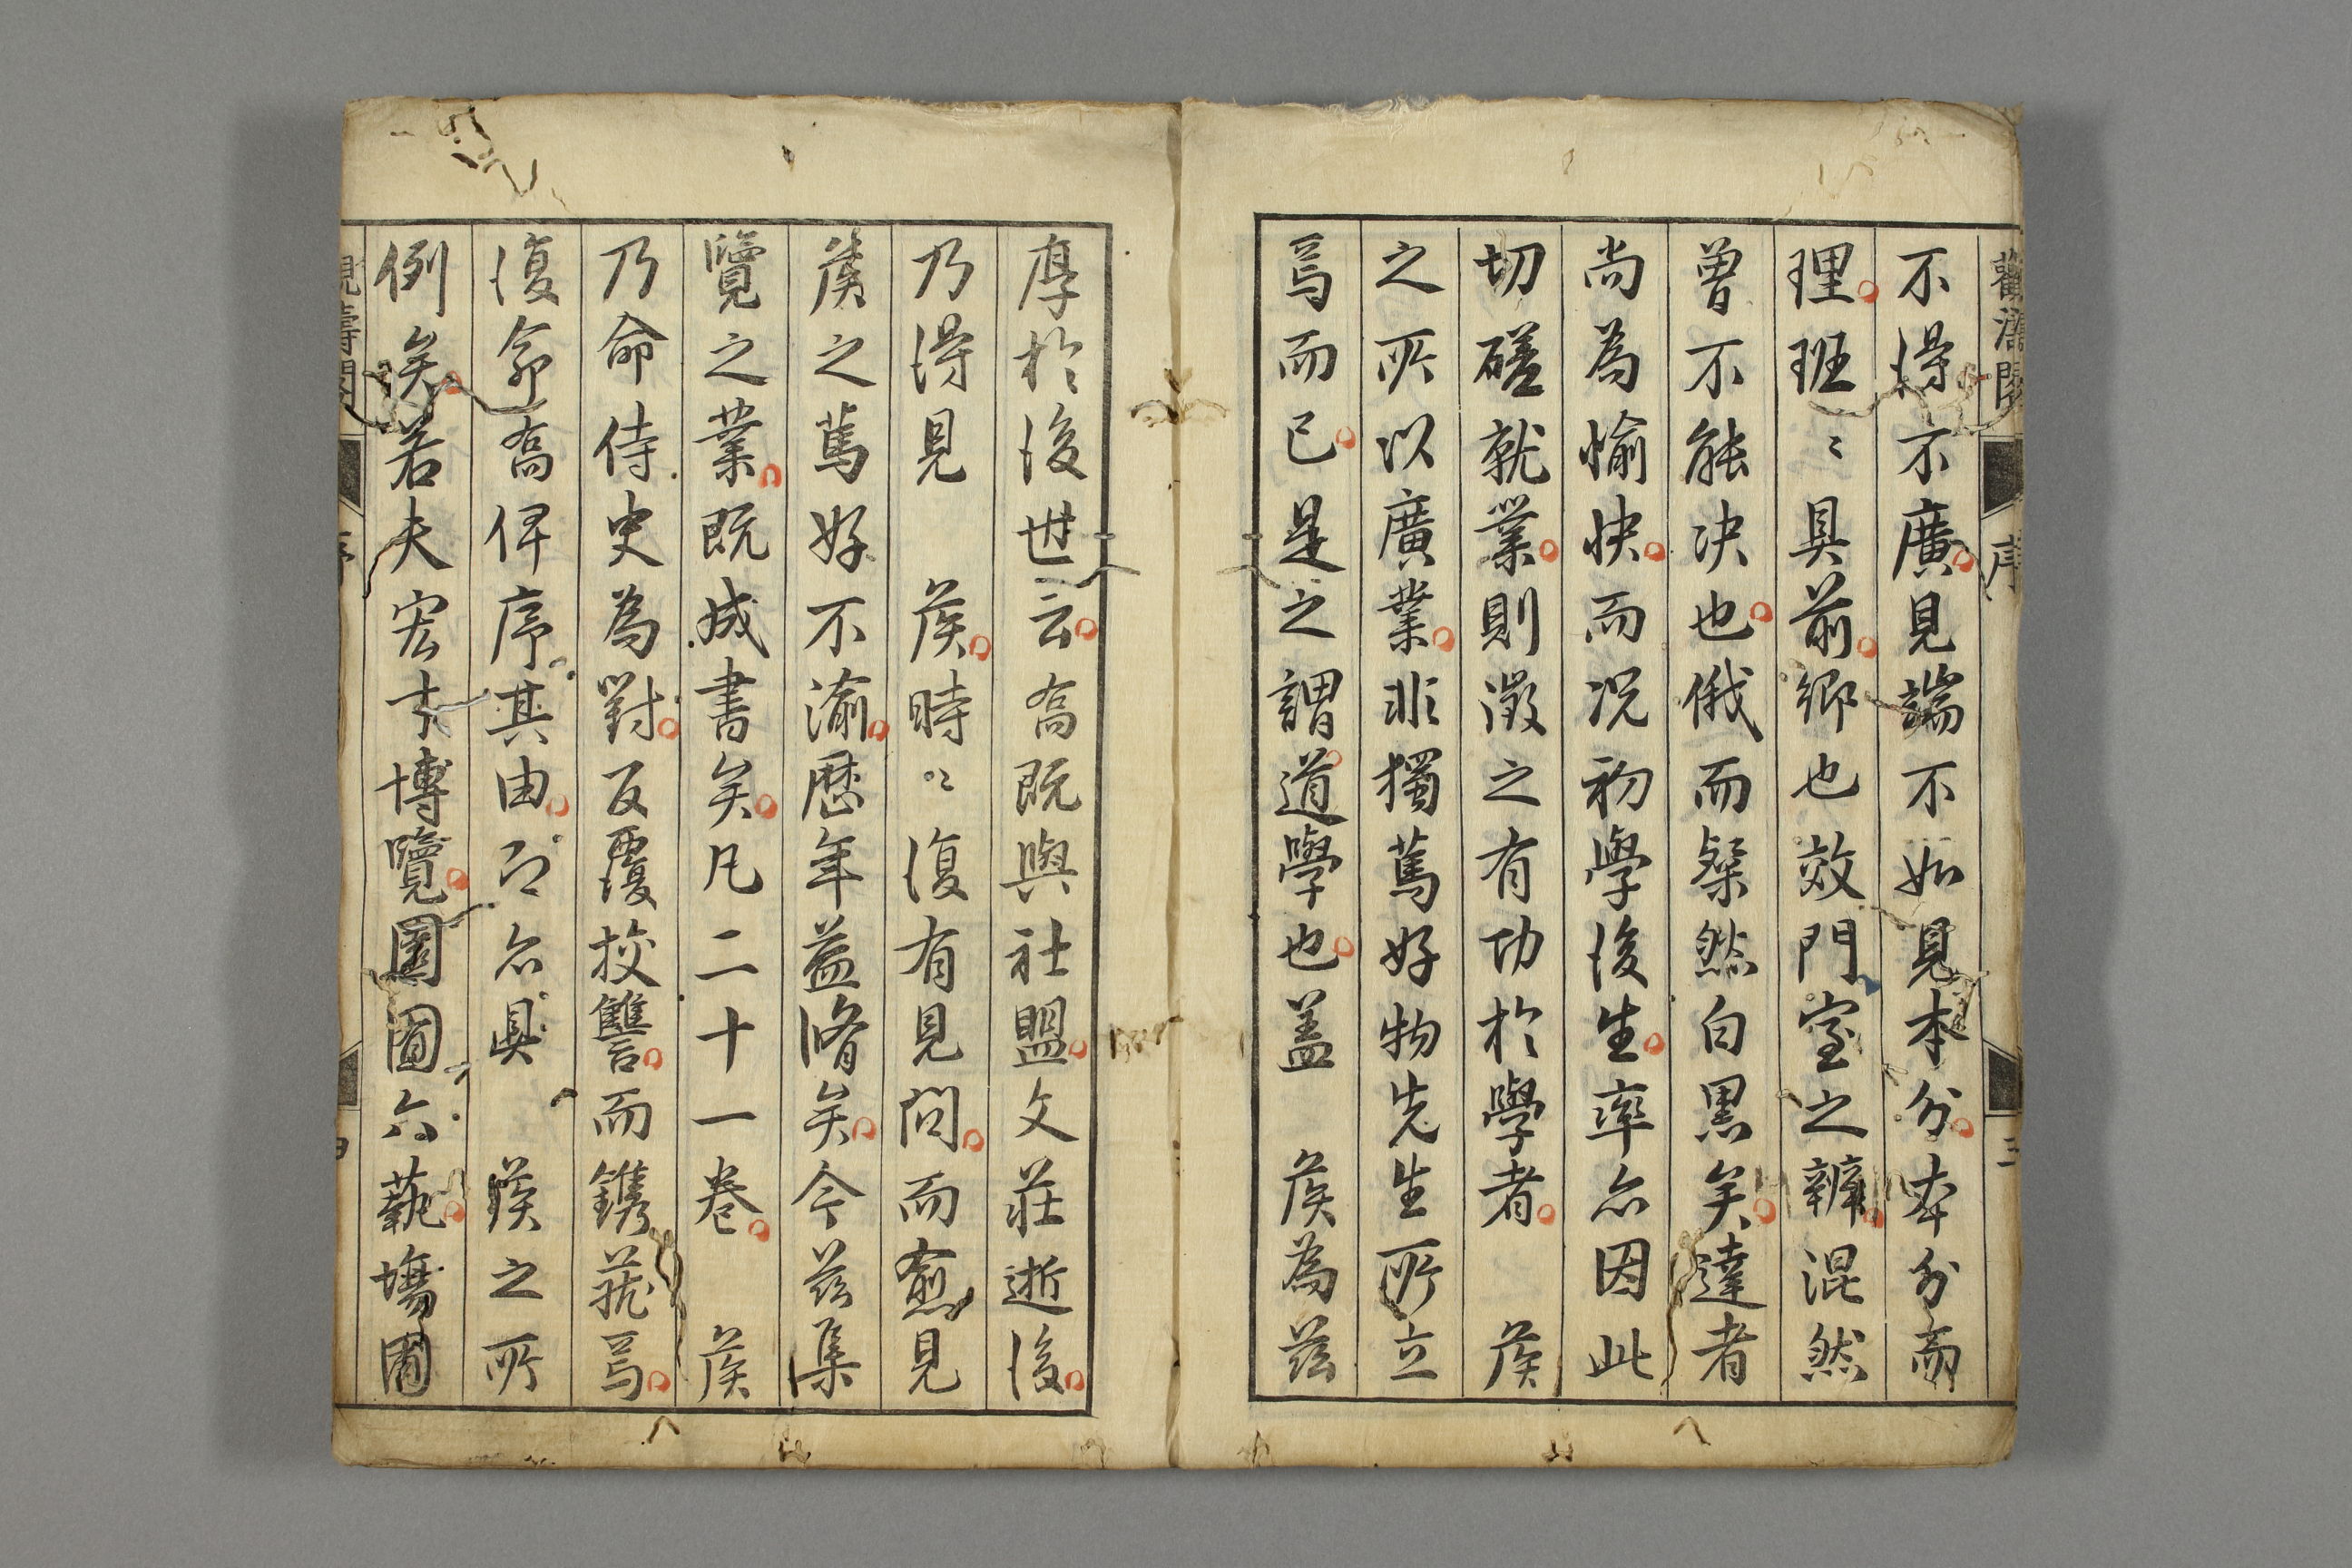 不得不廣見端不如見本分本分而
理班〻具前鄉也效門室之辨混然
曽不能决也俄而粲然白黒矣達者
尚為愉快而况初學後生率亦因此
切磋就業則激之有功於學者　侯
之所以廣業非獨篤好物先生所立
焉而已是之謂道學也蓋　侯為茲
序三
厚於後世云喬既與社盟文莊逝後
乃得見　侯時〻復有見問而愈見
侯之篤好不渝歴年益脩矣今茲集
覽之業既成書矣凡二十一卷　侯
乃命侍史為對反覆挍讐而鐫茷焉
復命喬俾序其由乃亦具　侯之所
例矣若夫宏才博覽圕圖六藝塲圃